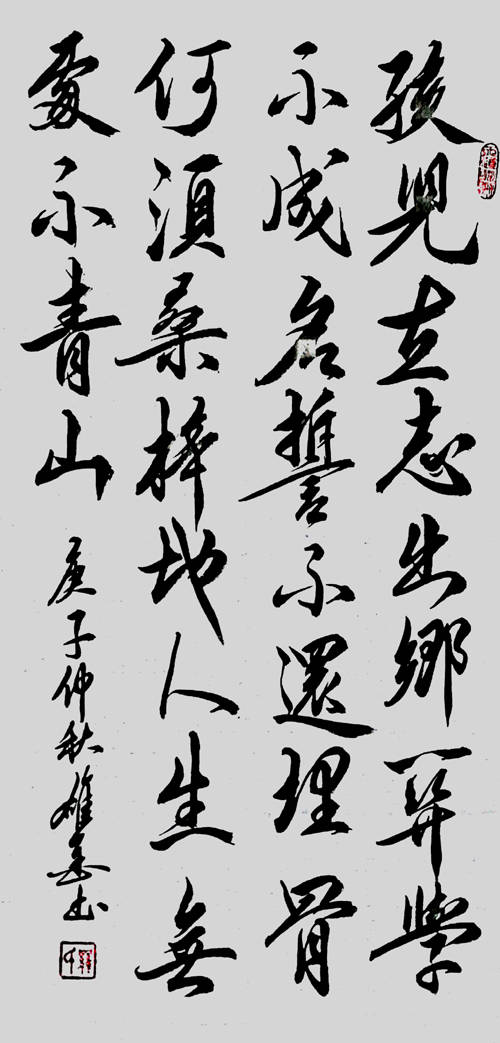 孩兒立志出鄉關學
不成名誓不還埋骨
何須桑梓地人生無
處不青山
庚子仲秋雄書